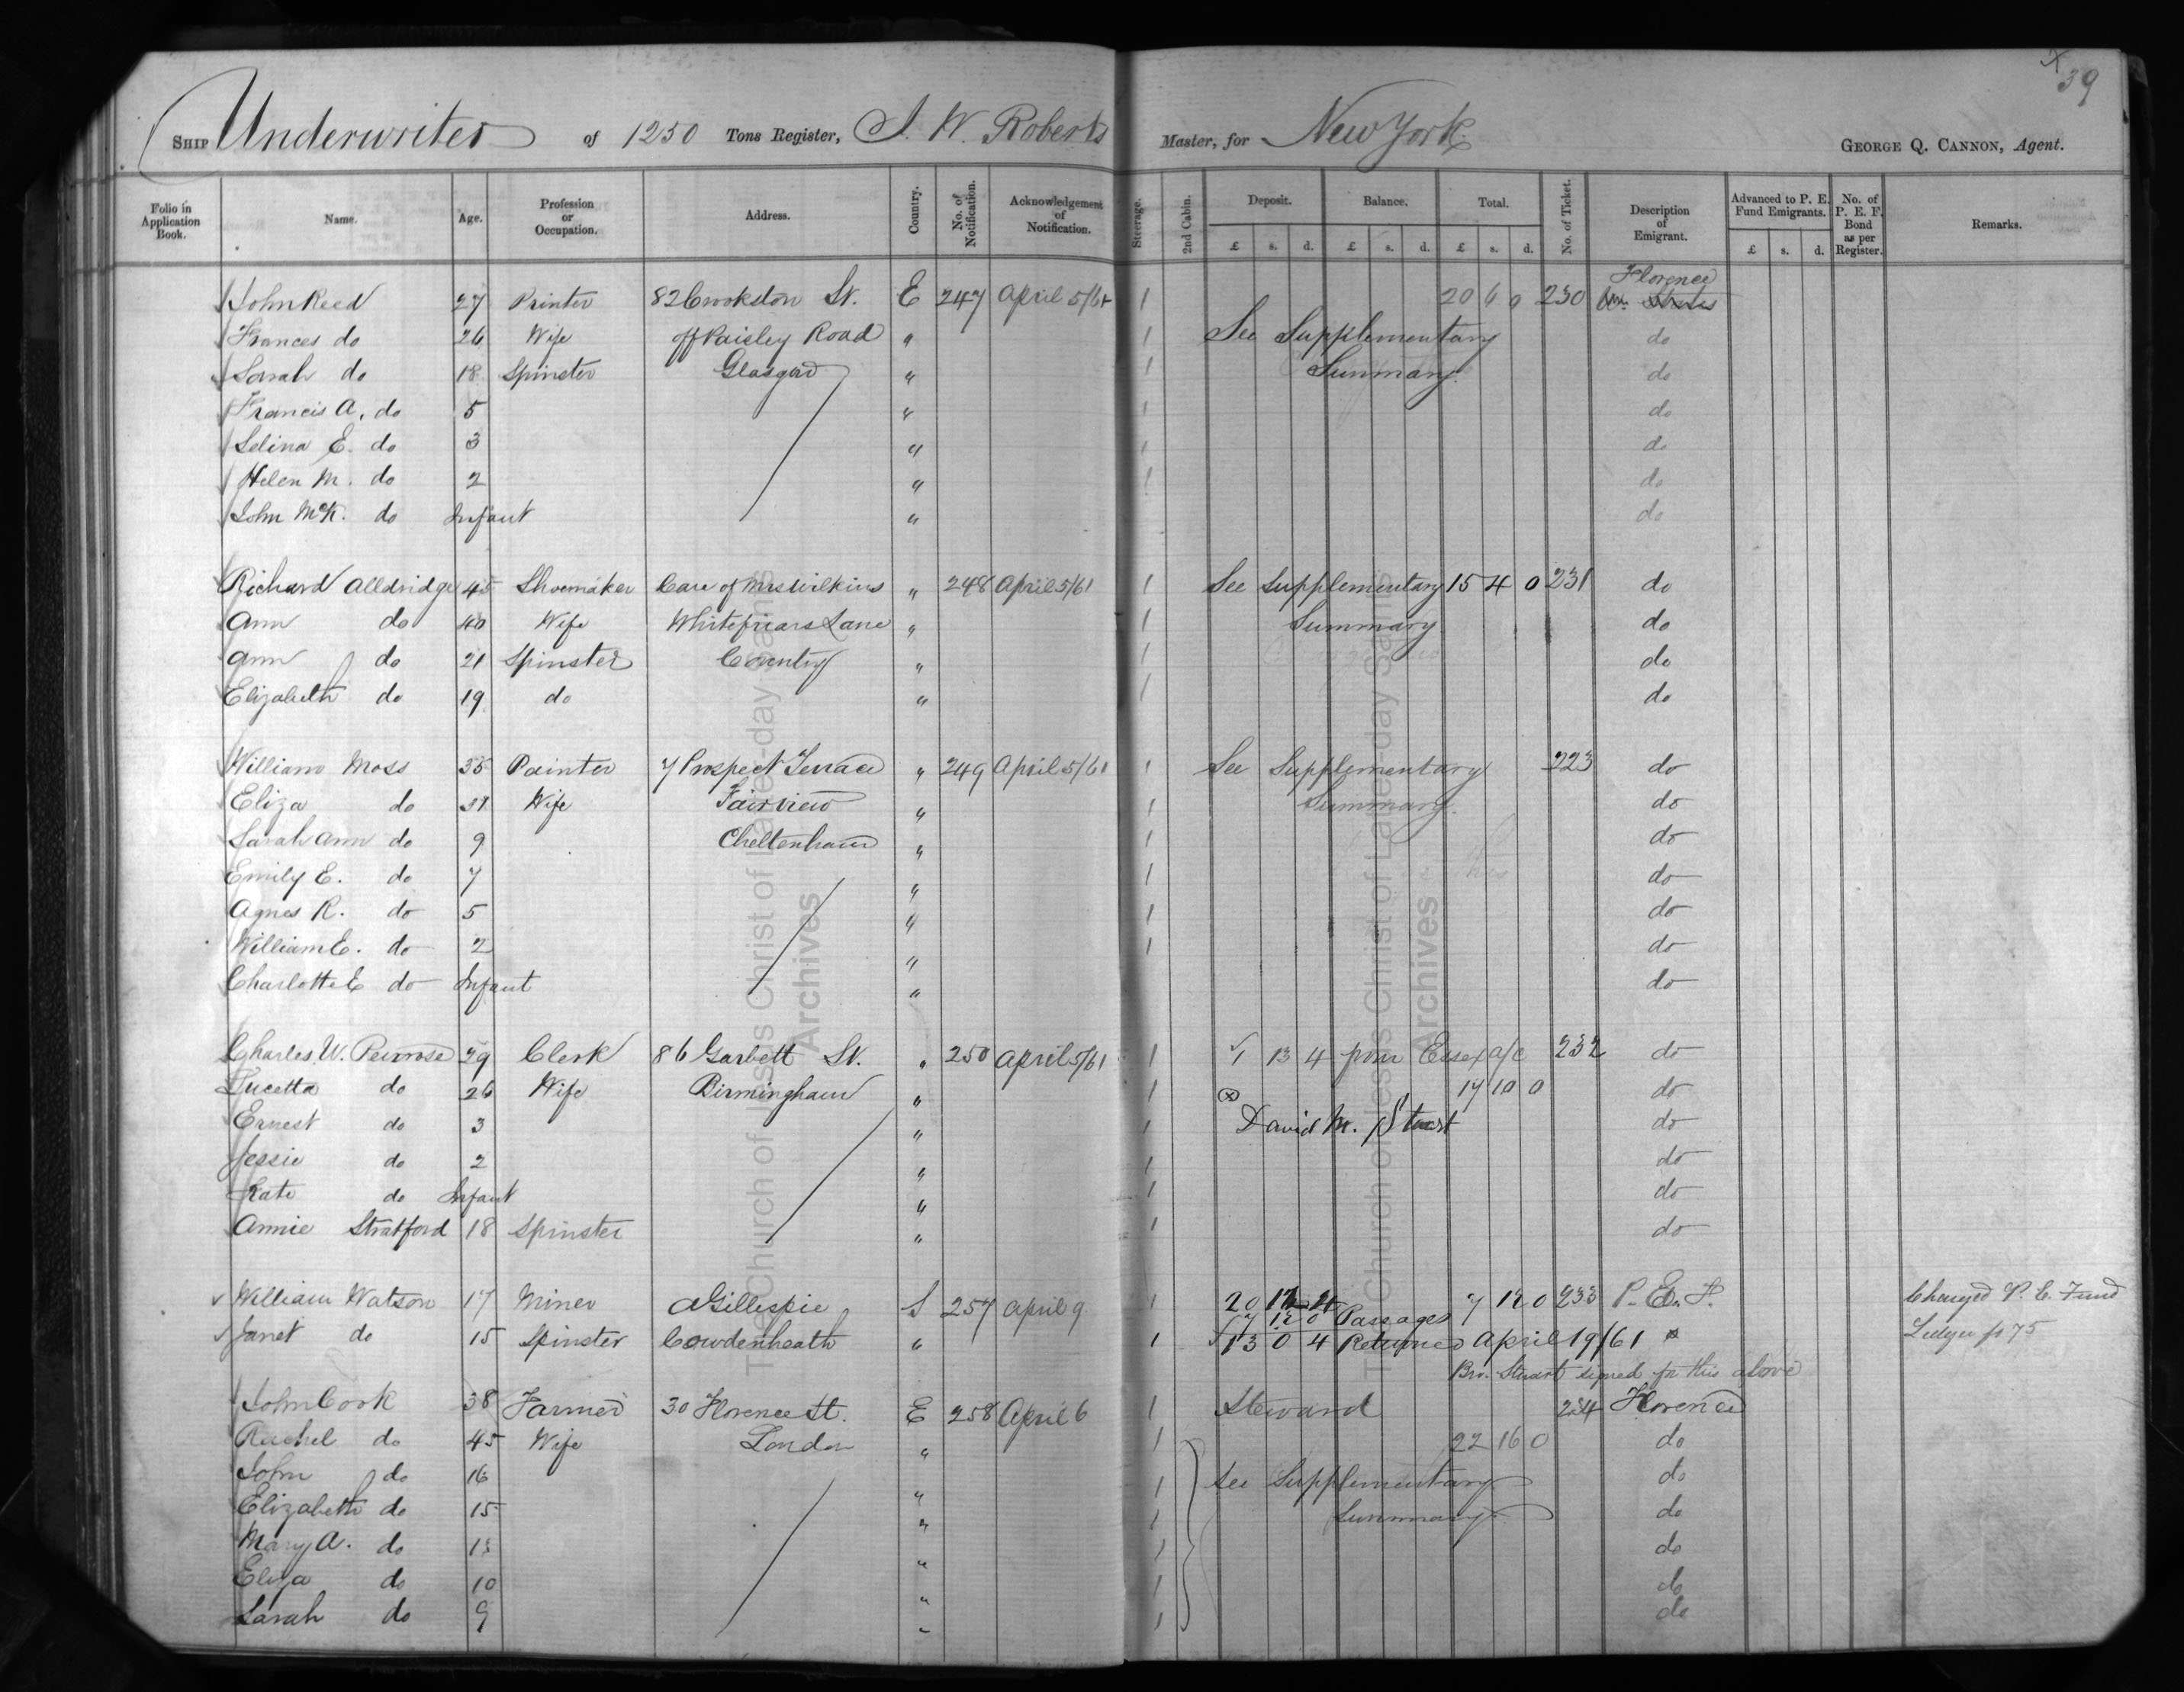 39
Ship Underwriter of 1250 Tons Register, J. W. Roberts Master, for New York George Q. Cannon, Agent.
Folio in Application Book. Name. Age. Profession or Occupation. Address. Country. No. of Notification. Acknowledgement of Notification. Steerage. 2nd Cabin. Deposit. Balance. Total. No. of Ticket. Description of Emigrant. Advanced to P. E. Fund Emigrants. No. of P. E. F. Bond as per Register. Remarks.
£ s. d. £ s. d. £ s. d. £ s. d.
Florence
John Reed 27 Printer 82 Crookston St. E 247 April 5/61 1 20 6 0 230 States
Frances do 26 Wife off Paisley Road " 1 See Supplementary do
Sarah do 18 Spinster Glasgow " 1 Summary. do
Francis A. do 5 " 1 do
Selina E. do 3 " 1 do
Helen M. do 2 " 1 do
John McK. do Infant " do
Richard Alldridge 45 Shoemaker Care of Mrs Wilkins " 248 April 5/61 1 See Supplementary 15 4 0 231 do
Ann do 40 Wife Whitefriars Lane " 1 Summary do
Ann do 21 Spinster Coventry " 1 do
Elizabeth do 19 do " 1 do
William Moss 35 Painter 7 Prospect Terrace " 249 April 5/61 1 See Supplementary 223 do
Eliza do 37 Wife Fairview " 1 Summary. do
Sarah Ann do 9 Cheltenham " 1 do
Emily E. do 7 " 1 do
Agnes R. do 5 " 1 do
William E. do 2 " 1 do
Charlotte E do Infant " do
Charles W. Penrose 29 Clerk 86 Garbett St. " 250 April 5/61 1 √1 13 4 from Essex a/c 232 do
Lucetta do 26 Wife Birmingham " 1 17 10 0 do
Ernest do 3 " 1 David M. Stuart do
Jessie do 2 " 1 do
Kate do Infant " 1 do
Annie Stratford 18 Spinster " 1 do
√ William Watson 17 Miner A Gillespie S 257 April 9 1 20 12 4 7 12 0 233 P. E. F. Charged P. E. Fund
7 12 0 Passages
√ Janet do 15 Spinster Cowdenheath " 1 √13 0 4 Returned April 19/61 Ledger p 75
Bro. Stuart signed for this above
John Cook 38 Farmer 30 Florence St. E 258 April 6 1 Steward 234 Florence
Rachel do 45 Wife London " 1 22 16 0 do
John do 16 " 1 See Supplementary do
Elizabeth do 15 " 1 Summary do
Mary A. do 13 " 1 do
Eliza do 10 " 1 do
Sarah do 9 " 1 do
The Church of Jesus Christ of Latter-day Saints
Archives
The Church of Jesus Christ of Latter-day Saints
Archives